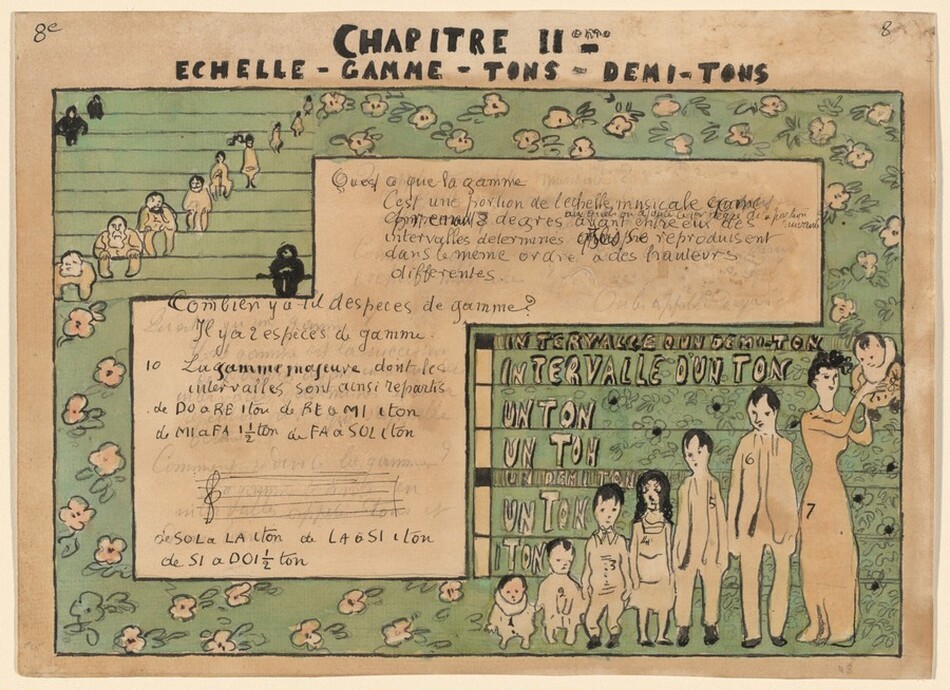 8e
8
CHAPITRE IIème
ECHELLE - GAMME - TONS - DEMI-TONS
Quest ce que la gamme
C'est une portion de l'echelle musicale
comprenant 8 degres ayant entre eux des
intervalles determines se reproduisent
dans le même ordre à des hauteurs
differentes.
Combien y a til despeces de gamme?
Il y a 2 especes de gamme.
10 La gamme majeure dont les
intervalles sont ainsi repartis
de DO a RE 1 ton de RE a MI 1 ton
de MI a FA 1 1/2 ton de FA a SOL 1 ton
de SOL a LA 1 ton de LA a SI 1 ton
de SI a DO 1 1/2 ton
INTERVALLE D'UN DEMI-TON
INTERVALLE D'UN TON
UN TON
UN TON
UN DEMI TON
UN TON
1 TON
2
3
4
5
6
7